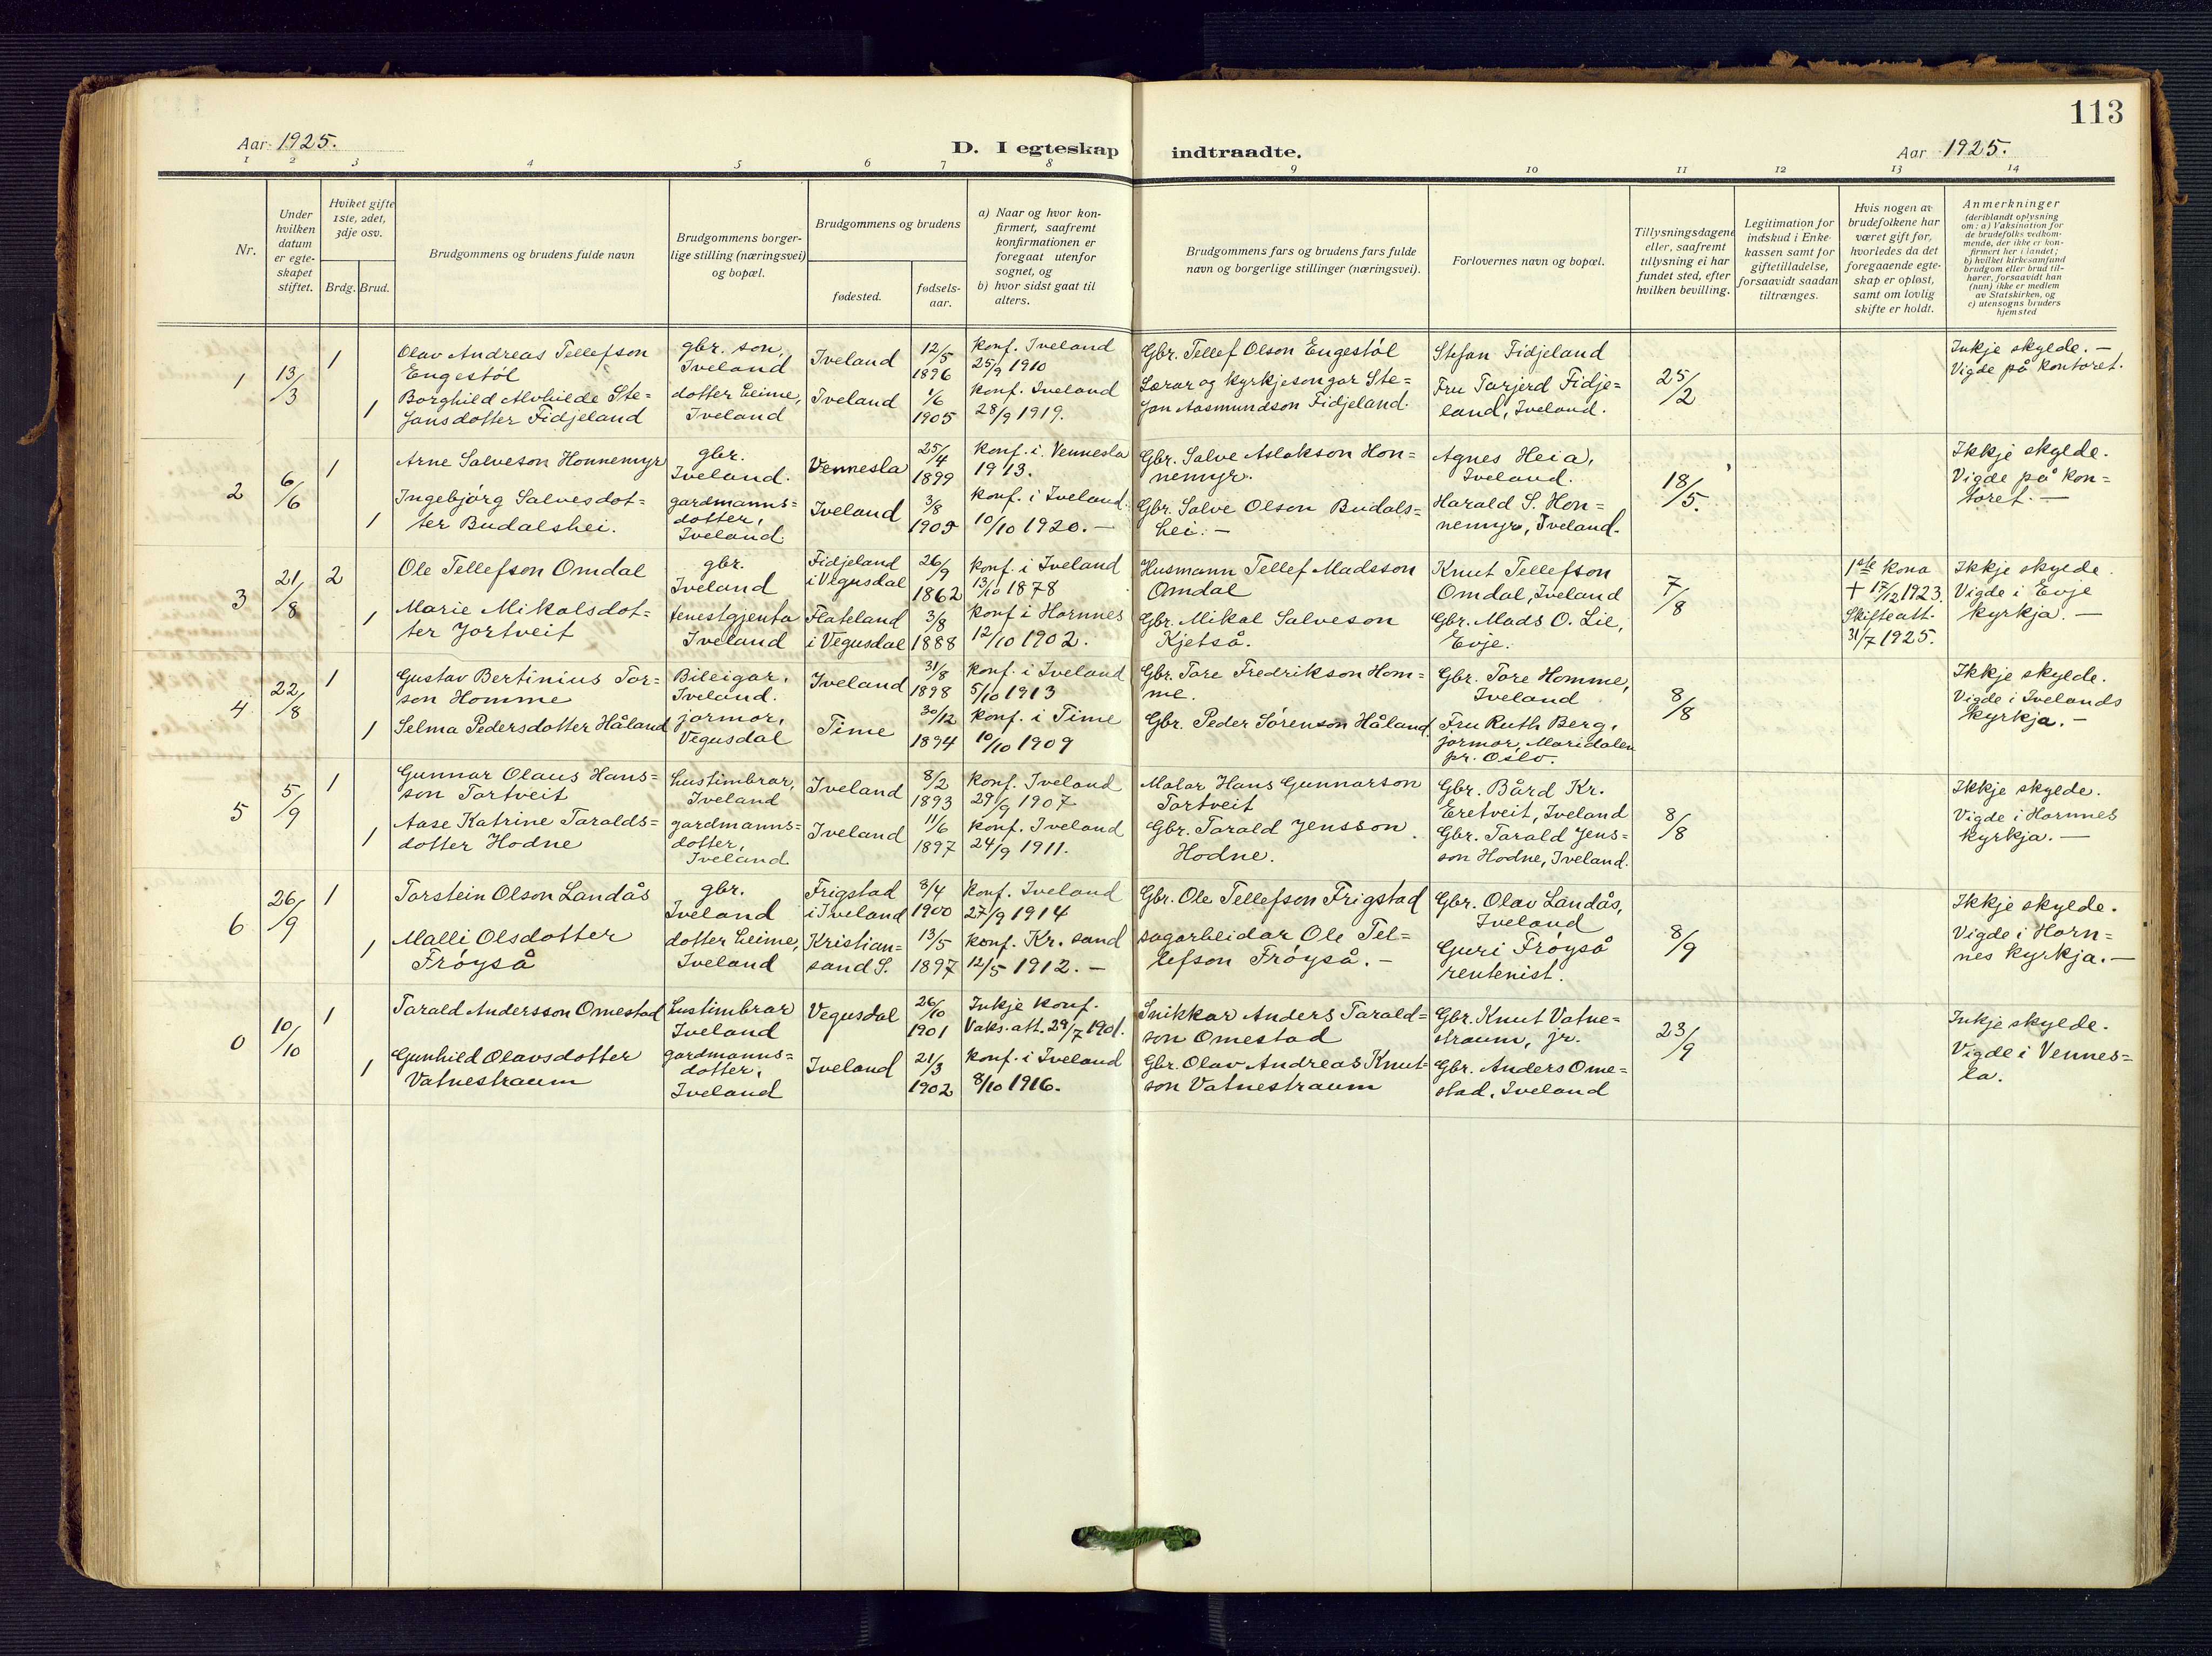 113
Aar 1925.
D. I egteskap indtraadte.
Aar 1925.
1 2 3 4 5 6 7 8 9 10 11 12 13 14
Nr.
Under
hvilken
datum
er egte-
skapet
stiftet.
Hviket gifte
1ste, 2det,
3dje osv.
Brdg. Brud.
Brudgommens og brudens fulde navn
Brudgommens borger-
lige stilling (næringsvei)
og bopæl.
Brudgommens og brudens
fødested.
fødsels-
aar.
a) Naar og hvor kon-
firmert, saafremt
konfirmationen er
foregaat utenfor
sognet, og
b) hvor sidst gaat til
alters.
Brudgommens fars og brudens fars fulde
navn og borgerlige stillinger (næringsvei).
Forlovernes navn og bopæl.
Tillysningsdagene
eller, saafremt
tillysning ei har
fundet sted, efter
hvilken bevilling.
Legitimation for
indskud i Enke-
kassen samt for
giftetilladelse,
forsaavidt saadan
tiltrænges.
Hvis nogen av
brudefolkene har
været gift før,
hvorledes da det
foregaaende egte-
skap er opløst,
samt om lovlig
skifte er holdt.
Anmerkninger
(deriblandt oplysning
om: a) Vaksination for
de brudefolks vedkom-
mende, der ikke er kon-
firmert her i landet;
b) hvilket kirkesamfund
brudgom eller brud til-
hører, forsaavidt han
(hun) ikke er medlem
av Statskirken, og
c) utensogns bruders
hjemsted
1
13/3
1
Olav Andreas Tellefson
Engestöl
gbr. son,
Iveland
Iveland
12/5
1896
Konf. Iveland
25/9 1910
Gbr. Tellef Olson Engestöl
Stefan Fidjeland
25/2
Inkje skylde. —
Vigde på kontoret.
1
Borghild Alvhilde Ste=
fansdotter Fidjeland
dotter heime,
Iveland
Iveland
1/6
1905
Konf. Iveland
28/9 1919.
Lærar og kyrkjesongar Ste=
fan Aasmundson Fidjeland.
Fru Tarjerd Fidje=
land, Iveland.
2
6/6
1
Arne Salveson Honnemyr
gbr.
Iveland.
Vennesla
25/4
1899
Konf. i. Vennesla
1913.
Gbr. Salve Aslakson Hon=
nemyr.
Agnes Heia,
Iveland.
18/5.
Ikkje skylde.
Vigde på kon=
toret. —
1
Ingebjörg Salvesdot=
ter Budalshei.
gardmanns=
dotter,
Iveland.
Iveland
3/8
1905
Konf. i Iveland.
10/10 1920. —
Gbr. Salve Olson Budals=
hei. —
Harald S. Hon=
nemyr, Iveland.
3
21/8
2
Ole Tellefson Omdal
gbr.
Iveland
Fidjeland
i Vegusdal
26/9
1862
Konf. i Iveland
13/10 1878
Husmann Tellef Madsson
Omdal
Knut Tellefson
Omdal, Iveland
7/8
1ste kona
+ 17/12 1923.
Skifteatt.
31/7 1925.
Ikkje skylde.
Vigde i Evje
kyrkja. —
1
Marie Mikalsdot=
ter Jortveit
tenestgjenta
Iveland
Flateland
i Vegusdal
3/8
1888
Konf i Hornnes
12/10 1902.
Gbr. Mikal Salveson
Kjetså.
Gbr. Mads O. Lie,
Evje.
4
22/8
1
Gustav Bertinius Tor=
son Homme
Bileigar,
Iveland.
Iveland
31/8
1898
Konf. i Iveland
5/10 1913
Gbr. Tore Fredrikson Hom=
me.
Gbr. Tore Homme,
Iveland
8/8
Ikkje skylde.
Vigde i Ivelands
kyrkja. —
1
Selma Pedersdotter Håland
jormor,
Vegusdal
Time
30/12
1894
Konf. i Time
10/10 1909
Gbr. Peder Sörenson Håland.
Fru Ruth Berg,
jormor, Maridalen
pr. Oslo.
5
5/9
1
Gunnar Olaus Hans=
son Tortveit
hustimbrar,
Iveland
Iveland
8/2
1893
Konf. Iveland
29/9 1907
Malar Hans Gunnarson
Tortveit
Gbr. Bård Kr.
Eretveit, Iveland
8/8
Ikkje skylde.
Vigde i Hornnes
kyrkja. —
1
Aase Katrine Taralds=
dotter Hodne
gardmanns=
dotter,
Iveland
Iveland
11/6
1897
Konf. Iveland
24/9 1911.
Gbr. Tarald Jensson
Hodne.
Gbr. Tarald Jens=
son Hodne, Iveland.
6
26/9
1
Torstein Olson Landås
gbr.
Iveland
Frigstad
i Iveland
8/4
1900
Konf. Iveland
27/9 1914
Gbr. Ole Tellefson Frigstad
Gbr. Olav Landås,
Iveland
8/9
Ikkje skylde.
Vigde i Horn=
nes kyrkja. —
1
Malli Olsdotter
Fröyså
dotter heime,
Iveland
Kristian=
sand S.
13/5
1897
Konf. Kr. sand
12/5 1912. —
sagarbeidar Ole Tel=
lefson Fröyså. —
Guri Fröyså
rentenist.
0
10/10
1
Tarald Andersson Omestad
hustimbrar
Iveland
Vegusdal
26/10
1901
Inkje konf.
Vaks. att. 29/7 1901.
Snikkar Anders Tarald=
son Omestad
Gbr. Knut Vatne=
straum, jr.
23/9
Inkje skylde.
Vigde i Vennes=
la.
1
Gunhild Olavsdotter
Vatnestraum
gardmanns=
dotter,
Iveland
Iveland
21/3
1902
Konf. i Iveland
8/10 1916.
Gbr. Olav Andreas Knut=
son Vatnestraum
Gbr. Anders Ome=
stad, Iveland